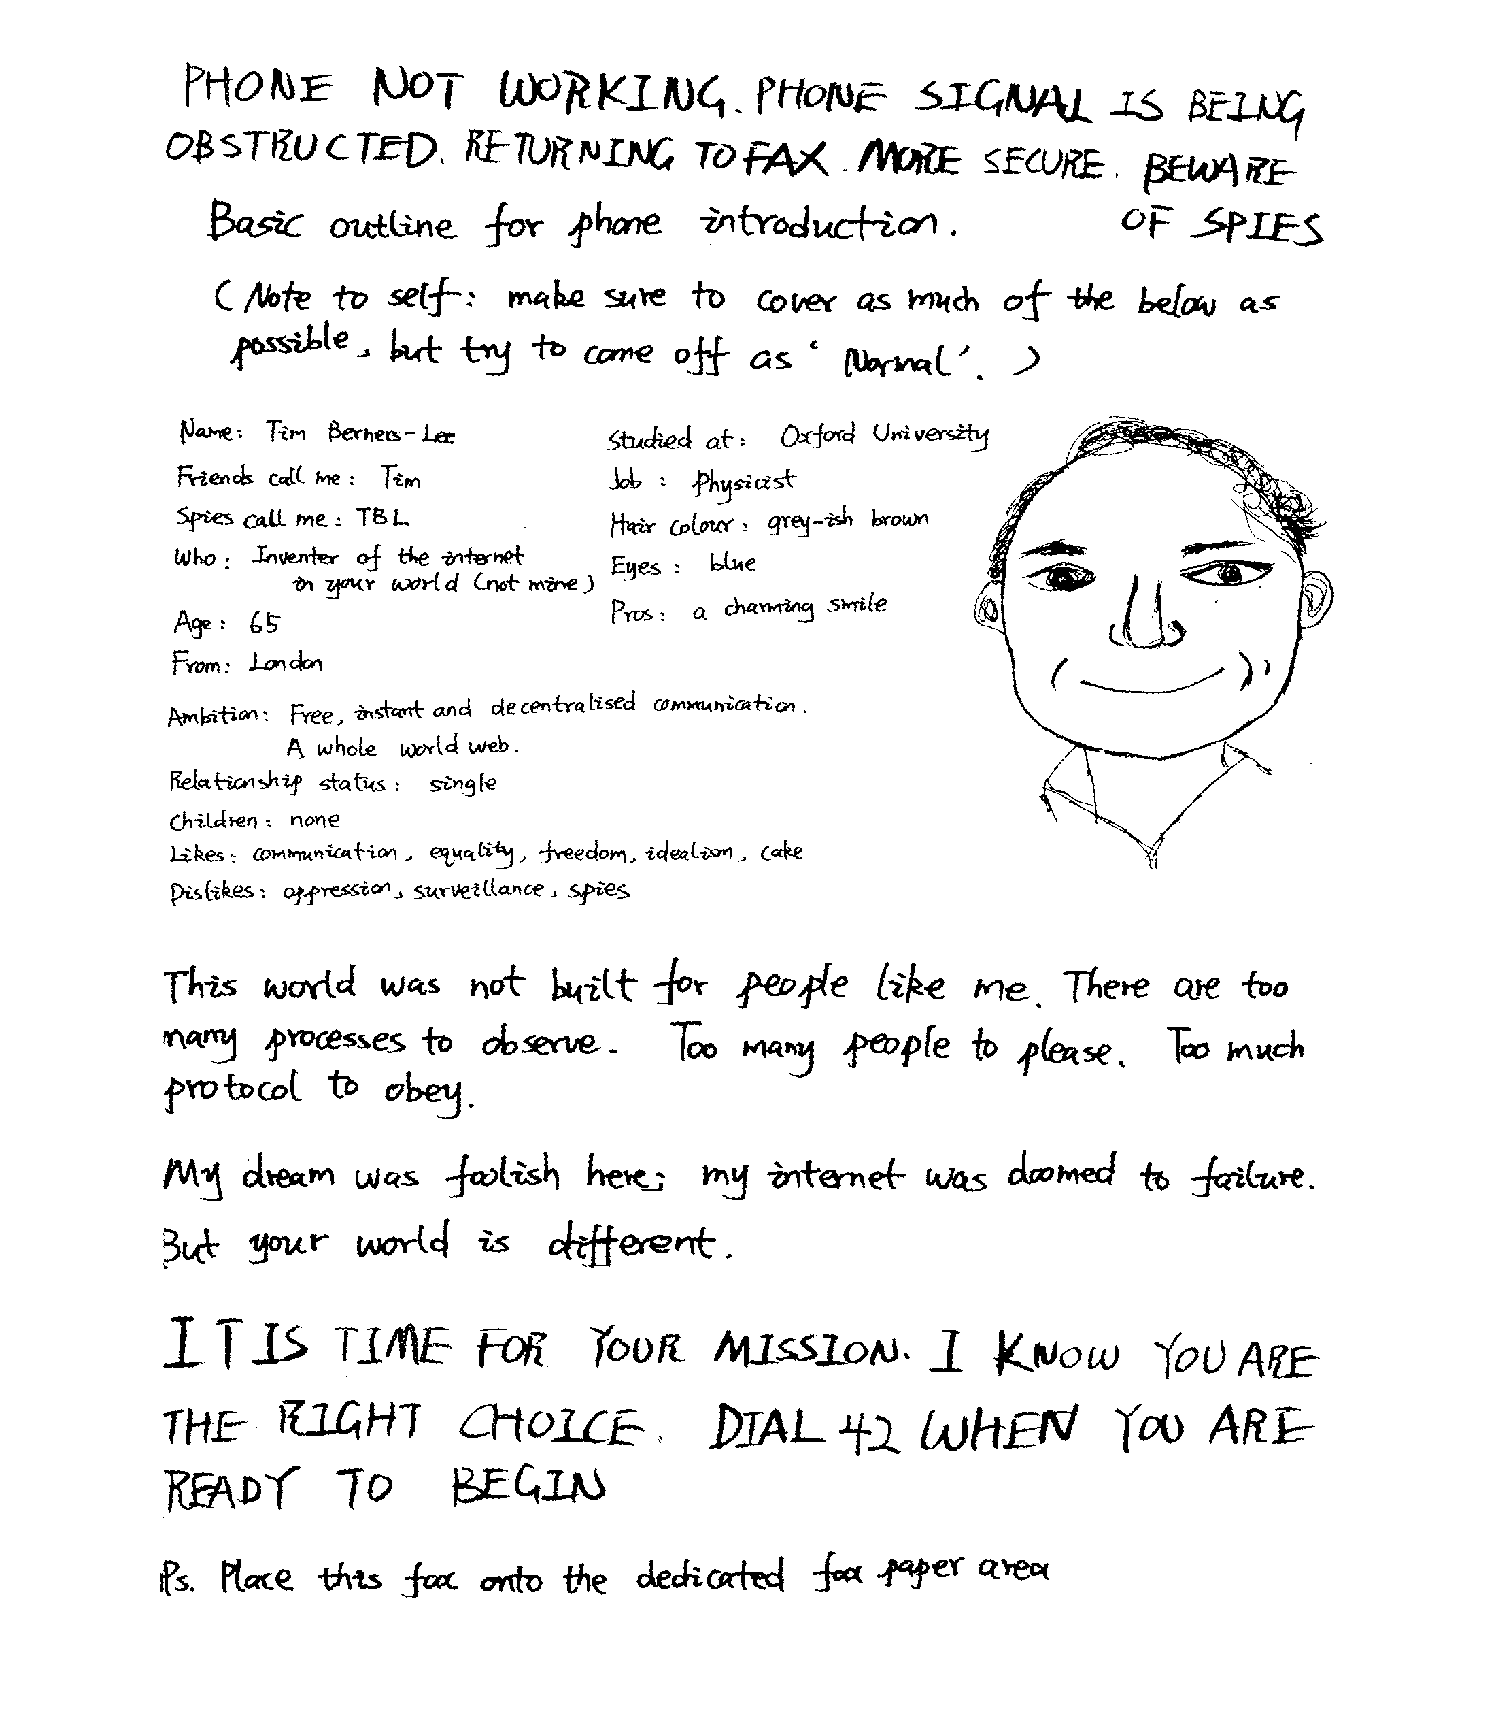 PHONE NOT WORKING. PHONE SIGNAL IS BEING
OBSTRUCTED. RETURNING TO FAX. MORE SECURE. BEWARE
OF SPIES
Basic outline for phone introduction.
(Note to self: make sure to cover as much of the below as
possible, but try to come off as 'Normal'.)
Name: Tim Berners-Lee
Friends call me: Tim
Spies call me: TBL
Who: Inventer of the internet
in your world (not mine)
Age: 65
From: London
Studied at: Oxford University
Job: Physicist
Hair colour: grey-ish brown
Eyes: blue
Pros: a charming smile
Ambition: Free, instant and decentralised communication.
A whole world web.
Relationship status: single
Children: none
Likes: communication, equality, freedom, idealism, cake
Dislikes: oppression, surveillance, spies
This world was not built for people like me. There are too
many processes to observe. Too many people to please. Too much
protocol to obey.
My dream was foolish here; my internet was doomed to failure.
But your world is different.
IT IS TIME FOR YOUR MISSION. I KNOW YOU ARE
THE RIGHT CHOICE. DIAL 42 WHEN YOU ARE
READY TO BEGIN
Ps. Place this fax onto the dedicated fax paper area